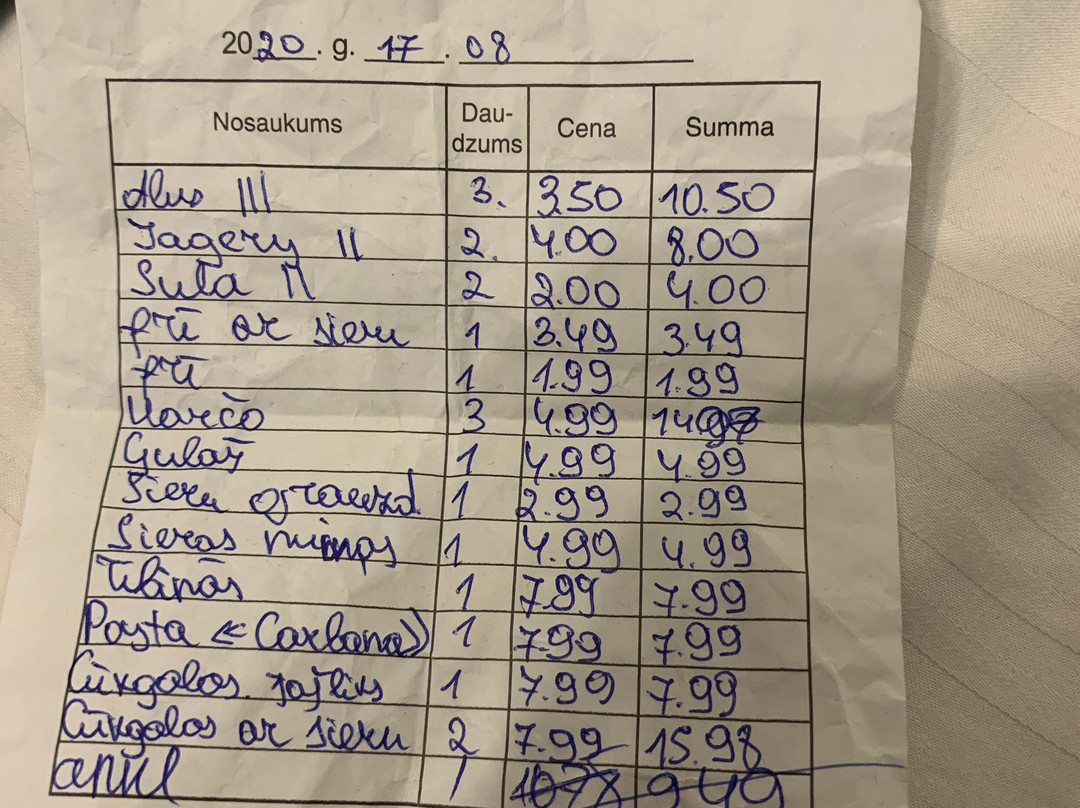 2020. g. 17. 08
Nosaukums Dau-dzums Cena Summa
Alus III 3. 3.50 10.50
Jagery II 2. 4.00 8.00
Sula II 2 2.00 4.00
frī ar sieru 1 3.49 3.49
frī 1 1.99 1.99
Harčo 3 4.99 14.97
Gulaš 1 4.99 4.99
Sieru grauzd. 1 2.99 2.99
Sieras 1 4.99 4.99
1 7.99 7.99
Pasta «Carbona» 1 7.99 7.99
Cūkgaļas šašliks 1 7.99 7.99
Cūkgaļas ar sieru 2 7.99 15.98
1 949